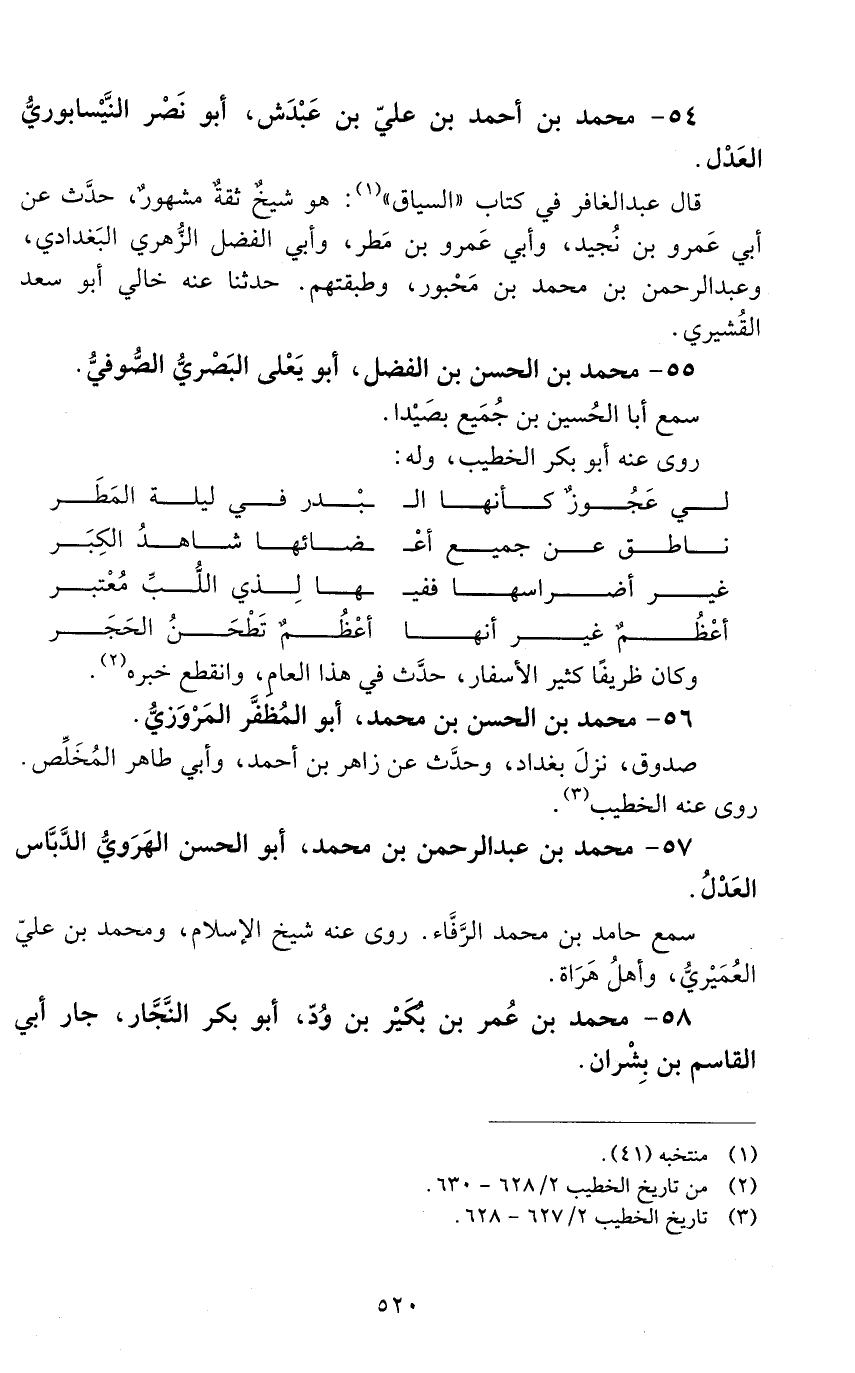 ٥٤- محمد بن أحمد بن عليّ بن عَبْدَش، أبو نَصْر النَّيْسابوريُّ
العَدْل.
قال عبدالغافر في كتاب «السياق»(١): هو شيخٌ ثقةٌ مشهورٌ، حدَّث عن
أبي عَمرو بن نُجيد، وأبي عَمرو بن مَطر، وأبي الفضل الزُّهري البَغدادي،
وعبدالرحمن بن محمد بن مَحْبور، وطبقتهم. حدثنا عنه خالي أبو سعد
القُشيري.
٥٥- محمد بن الحسن بن الفضل، أبو يَعْلى البَصْريُّ الصُّوفيُّ.
سمع أبا الحُسين بن جُمَيع بصَيْدا.
روى عنه أبو بكر الخطيب، وله:
لـي عَجُـوزٌ كـأنهـا الـ ـبْـدر فـي ليلـة المَطَـر
نـاطـق عـن جميـع أعْـ ـضـائهـا شـاهـدُ الكِبَـر
غيـر أضـراسهـا ففيـ ـهـا لِـذي اللُّـبِّ مُعْتبـر
أعْظُـمٌ غيـر أنهـا أعْظُـمٌ تَطْحَـنُ الحَجَـر
وكان ظريفًا كثير الأسفار، حدَّث في هذا العام، وانقطع خبره(٢).
٥٦- محمد بن الحسن بن محمد، أبو المُظفَّر المَرْوَزيُّ.
صدوق، نزلَ بغداد، وحدَّث عن زاهر بن أحمد، وأبي طاهر المُخَلِّص.
روى عنه الخطيب(٣).
٥٧- محمد بن عبدالرحمن بن محمد، أبو الحسن الهَرَويُّ الدَّبَّاس
العَدْلُ.
سمع حامد بن محمد الرَّفَّاء. روى عنه شيخ الإسلام، ومحمد بن عليّ
العُمَيْريُّ، وأهلُ هَرَاة.
٥٨- محمد بن عُمر بن بُكَيْر بن وُدّ، أبو بكر النَّجَّار، جار أبي
القاسم بن بِشْران.
(١) منتخبه (٤١).
(٢) من تاريخ الخطيب ٢/ ٦٢٨ - ٦٣٠.
(٣) تاريخ الخطيب ٢/ ٦٢٧ - ٦٢٨.
٥٢٠